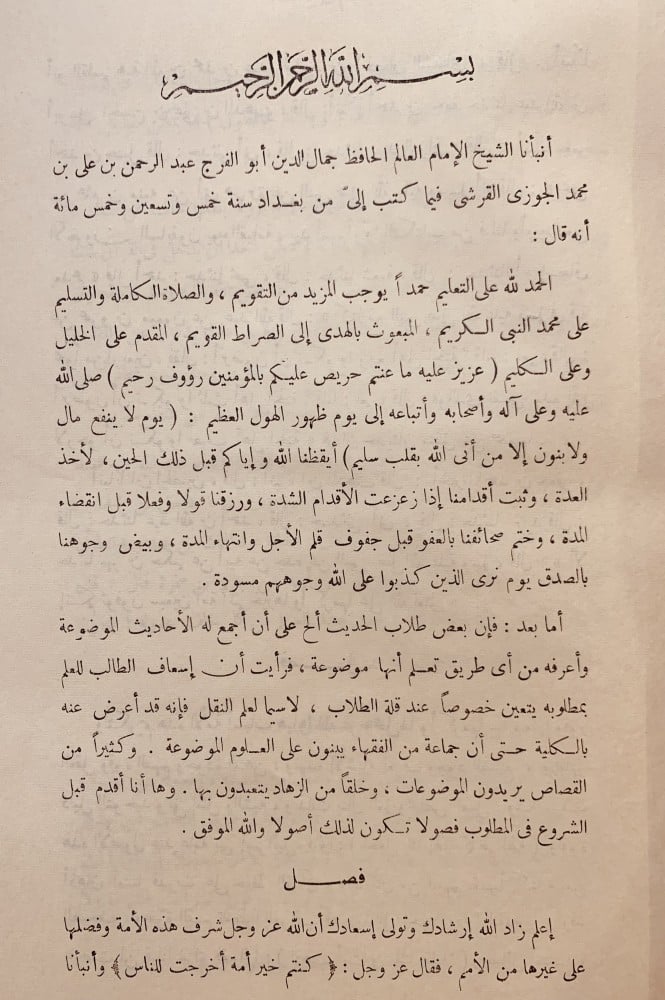 بسم الله الرحمن الرحيم
أنبأنا الشيخ الإمام العالم الحافظ جمال الدين أبو الفرج عبد الرحمن بن على بن
محمد الجوزى القرشى فيما كتب إلىّ من بغداد سنة خمس وتسعين وخمس مائة
أنه قال :
الحمد لله على التعليم حمداً يوجب المزيد من التقويم ، والصلاة الكاملة والتسليم
على محمد النبى الكريم ، المبعوث بالهدى إلى الصراط القويم ، المقدم على الخليل
وعلى الكليم ( عزيز عليه ما عنتم حريص عليكم بالمؤمنين رؤوف رحيم ) صلى الله
عليه وعلى آله وأصحابه وأتباعه إلى يوم ظهور الهول العظيم : ( يوم لا ينفع مال
ولا بنون إلا من أتى الله بقلب سليم ) أيقظنا الله وإياكم قبل ذلك الحين ، لأخذ
العدة ، وثبت أقدامنا إذا زعزعت الأقدام الشدة ، ورزقنا قولا وفعلا قبل انقضاء
المدة ، وختم صحائفنا بالعفو قبل جفوف قلم الأجل وانتهاء المدة ، وبيض وجوهنا
بالصدق يوم نرى الذين كذبوا على الله وجوههم مسودة .
أما بعد : فإن بعض طلاب الحديث ألح على أن أجمع له الأحاديث الموضوعة
وأعرفه من أى طريق تعلم أنها موضوعة ، فرأيت أن إسعاف الطالب للعلم
بمطلوبه يتعين خصوصاً عند قلة الطلاب ، لاسيما لعلم النقل فإنه قد أعرض عنه
بالكلية حتى أن جماعة من الفقهاء يبنون على العلوم الموضوعة . وكثيراً من
القصاص يريدون الموضوعات ، وخلقاً من الزهاد يتعبدون بها . وها أنا أقدم قبل
الشروع فى المطلوب فصولا تكون لذلك أصولا والله الموفق .
فصل
إعلم زاد الله إرشادك وتولى إسعادك أن الله عز وجل شرف هذه الأمة وفضلها
على غيرها من الأمم ، فقال عز وجل : ﴿ كنتم خير أمة أخرجت للناس ﴾ وأنبأنا